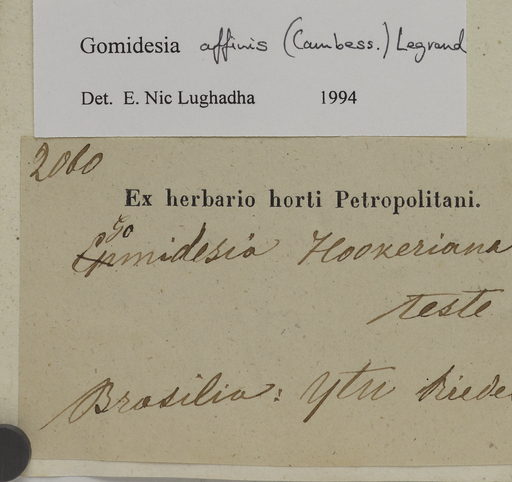 Gomidesia affinis (Cambess.) Legrand
Det. E. Nic Lughadha 1994
2060
Ex herbario horti Petropolitani.
Go
Gomidesia Hookeriana
teste
Brasilia: Ytu Riede